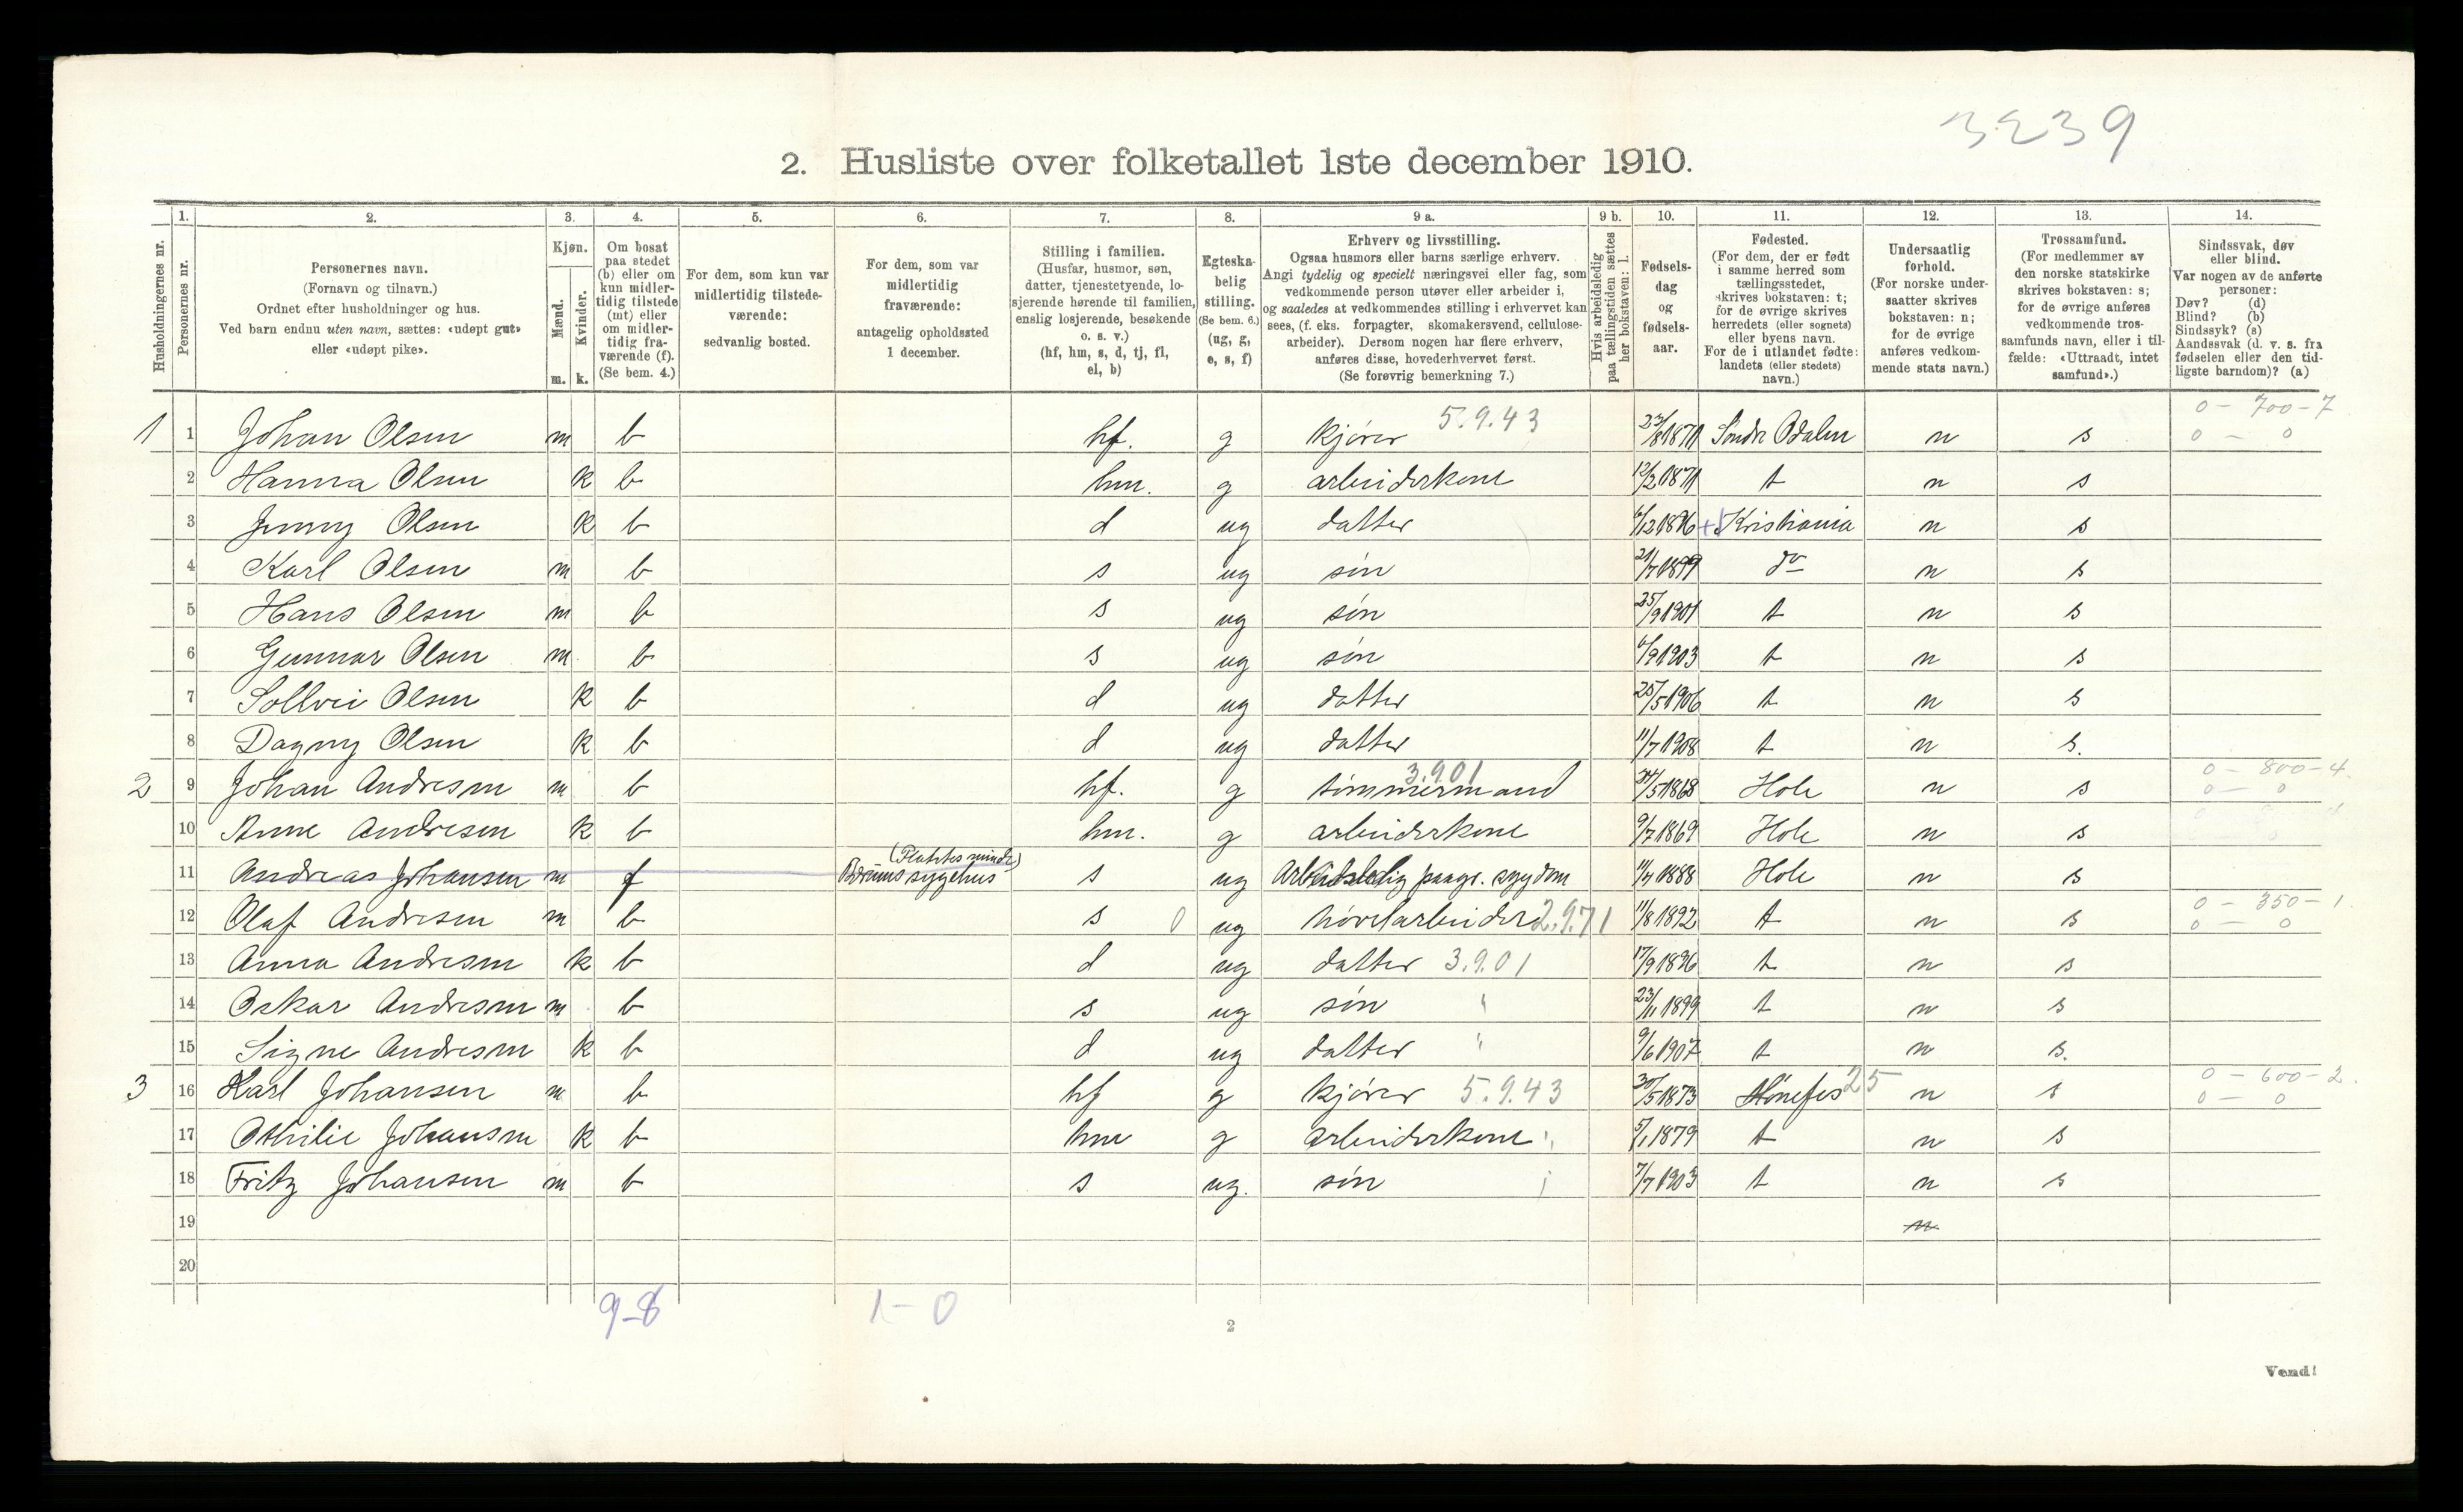 3239
2. Husliste over folketallet 1ste december 1910.
Husholdningernes nr.
1.
Personernes nr.
2.
Personernes navn.
(Fornavn og tilnavn.)
Ordnet efter husholdninger og hus.
Ved barn endnu uten navn, sættes: «udøpt gut»
eller «udøpt pike».
3.
Kjøn.
Mænd.
Kvinder.
m. k.
4.
Om bosat
paa stedet
(b) eller om
kun midler-
tidig tilstede
(mt) eller
om midler-
tidig fra-
værende (f).
(Se bem. 4.)
5.
For dem, som kun var
midlertidig tilstede-
værende:
sedvanlig bosted.
6.
For dem, som var
midlertidig
fraværende:
antagelig opholdssted
1 december.
7.
Stilling i familien.
(Husfar, husmor, søn,
datter, tjenestetyende, lo-
sjerende hørende til familien,
enslig losjerende, besøkende
o. s. v.)
(hf, hm, s, d, tj, fl,
el, b)
8.
Egteska-
belig
stilling.
(Se bem. 6.)
(ug, g,
e, s, f)
9 a.
Erhverv og livsstilling.
Ogsaa husmors eller barns særlige erhverv.
Angi tydelig og specielt næringsvei eller fag, som
vedkommende person utøver eller arbeider i,
og saaledes at vedkommendes stilling i erhvervet kan
sees, (f. eks. forpagter, skomakersvend, cellulose-
arbeider). Dersom nogen har flere erhverv,
anføres disse, hovederhvervet først.
(Se forøvrig bemerkning 7.)
9 b.
Hvis arbeidsledig
paa tællingstiden sættes
her bokstaven: l.
10.
Fødsels-
dag
og
fødsels-
aar.
11.
Fødested.
(For dem, der er født
i samme herred som
tællingsstedet,
skrives bokstaven: t;
for de øvrige skrives
herredets (eller sognets)
eller byens navn.
For de i utlandet fødte:
landets (eller stedets)
navn.)
12.
Undersaatlig
forhold.
(For norske under-
saatter skrives
bokstaven: n;
for de øvrige
anføres vedkom-
mende stats navn.)
13.
Trossamfund.
(For medlemmer av
den norske statskirke
skrives bokstaven: s;
for de øvrige anføres
vedkommende tros-
samfunds navn, eller i til-
fælde: «Uttraadt, intet
samfund».)
14.
Sindssvak, døv
eller blind.
Var nogen av de anførte
personer:
Døv? (d)
Blind? (b)
Sindssyk? (s)
Aandssvak (d. v. s. fra
fødselen eller den tid-
ligste barndom)? (a)
1 1 Johan Olsen m b hf. g kjører 5.9.43 23/8 1871 Søndre Odalen n s 0 – 700 – 7 0 – 0
2 Hanna Olsen k b hm. g arbeiderkone 12/2 1871 t n s
3 Jenny Olsen k b d ug datter 6/12 1896 + Kristiania n s
4 Karl Olsen m b s ug søn 21/7 1899 do n s
5 Hans Olsen m b s ug søn 25/9 1901 t n s
6 Gunnar Olsen m b s ug søn 6/9 1903 t n s
7 Sollvei Olsen k b d ug datter 25/5 1906 t n s
8 Dagny Olsen k b d ug datter 11/7 1908 t n s.
2 9 Johan Andresen m b hf. g tømmermand 3.901 24/5 1868 Hole n s 0 – 800 – 4. 0 – 0
10 Anne Andresen k b hm. g arbeiderkone 9/7 1869 Hole n s
11 Andreas Johansen m f Bærums sygehus s ug Arbeidsledig paagr. sygdom 11/7 1888 Hole n s
12 Olaf Andresen m b s 0 ug høvelarbeider 2.971 11/8 1892 t n s 0 – 350 – 1. 0 – 0
13 Anna Andresen k b d ug datter 3.901 17/9 1896 t n s
14 Oskar Andresen m b s ug søn " 23/11 1899 t n s
15 Signe Andresen k b d ug datter " 9/6 1907 t n s.
3 16 Karl Johansen m b hf g kjører 5.9.43 30/5 1873 Hønefos 25 n s 0 – 600 – 2. 0 – 0
17 Othilie Johansen k b hm g arbeiderkone " 5/1 1879 t n s
18 Fritz Johansen m b s ug. søn 7/7 1903 t n s
19 n
20
9–8 1–0
2
Vend!